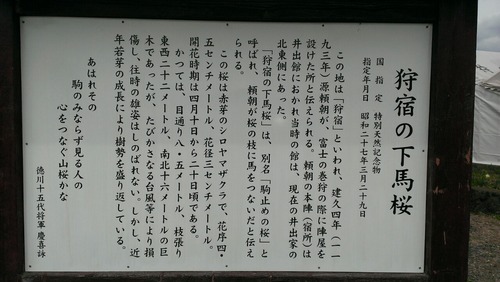 狩宿の下馬桜
国指定 特別天然記念物
指定年月日 昭和二十七年三月二十九日
この地は「狩宿」といわれ、建久四年（一一
九三年）源頼朝が、富士の巻狩の際に陣屋を
設けた所と伝えられる。頼朝の本陣（宿所）は
井出館におかれ当時の館は、現在の井出家の
北東側にあった。
「狩宿の下馬桜」は、別名「駒止めの桜」と
呼ばれ、頼朝が桜の枝に馬をつないだと伝え
られる。
この桜は赤芽のシロヤマザクラで、花序四・
五センチメートル、花径三センチメートル。
開花時期は四月十日から二十日頃である。
かつては、目通り八・五メートル、枝張り
東西二十二メートル、南北十六メートルの巨
木であったが、たびかさなる台風等により損
傷し、往時の雄姿はしのばれない。しかし、近
年若芽の成長により樹勢を盛り返している。
あはれその
駒のみならず見る人の
心をつなぐ山桜かな
徳川十五代将軍慶喜詠